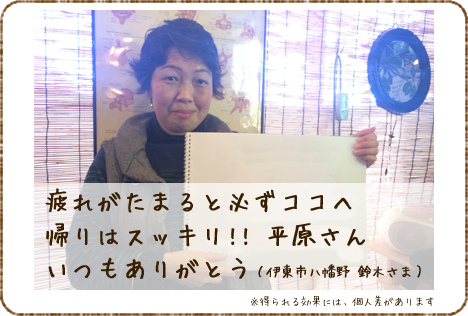 疲れがたまると必ずココへ
帰りはスッキリ!! 平原さん
いつもありがとう(伊東市八幡野 鈴木さま)
※得られる効果には、個人差があります